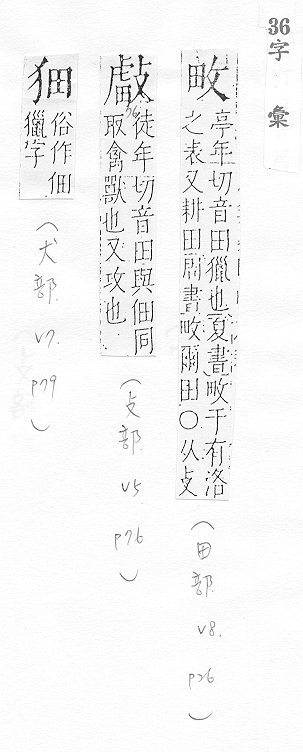 36
字彙
畋
亭年切音田獵也夏書畋于有洛
之表又耕田周書畋爾田○从攴
(田部 v8. p26)
徒年切音田與佃同
取禽獸也又攻也
(攴部 v5 p76)
俗作佃
獵字
(犬部 v7. p79)